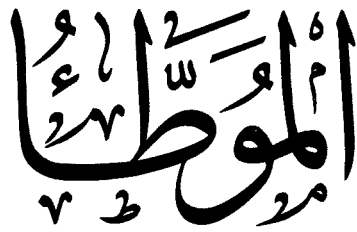 الموطأ